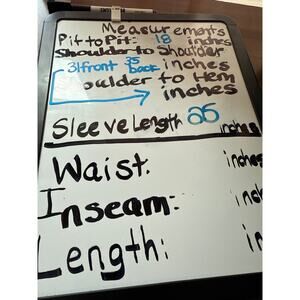 Measurements
Pit to Pit: 18 inches
Shoulder to Shoulder
31 front 35 back inches
oulder to Hem
inches
Sleeve Length 25 inches
Waist. inches
Inseam: inch
Length: in